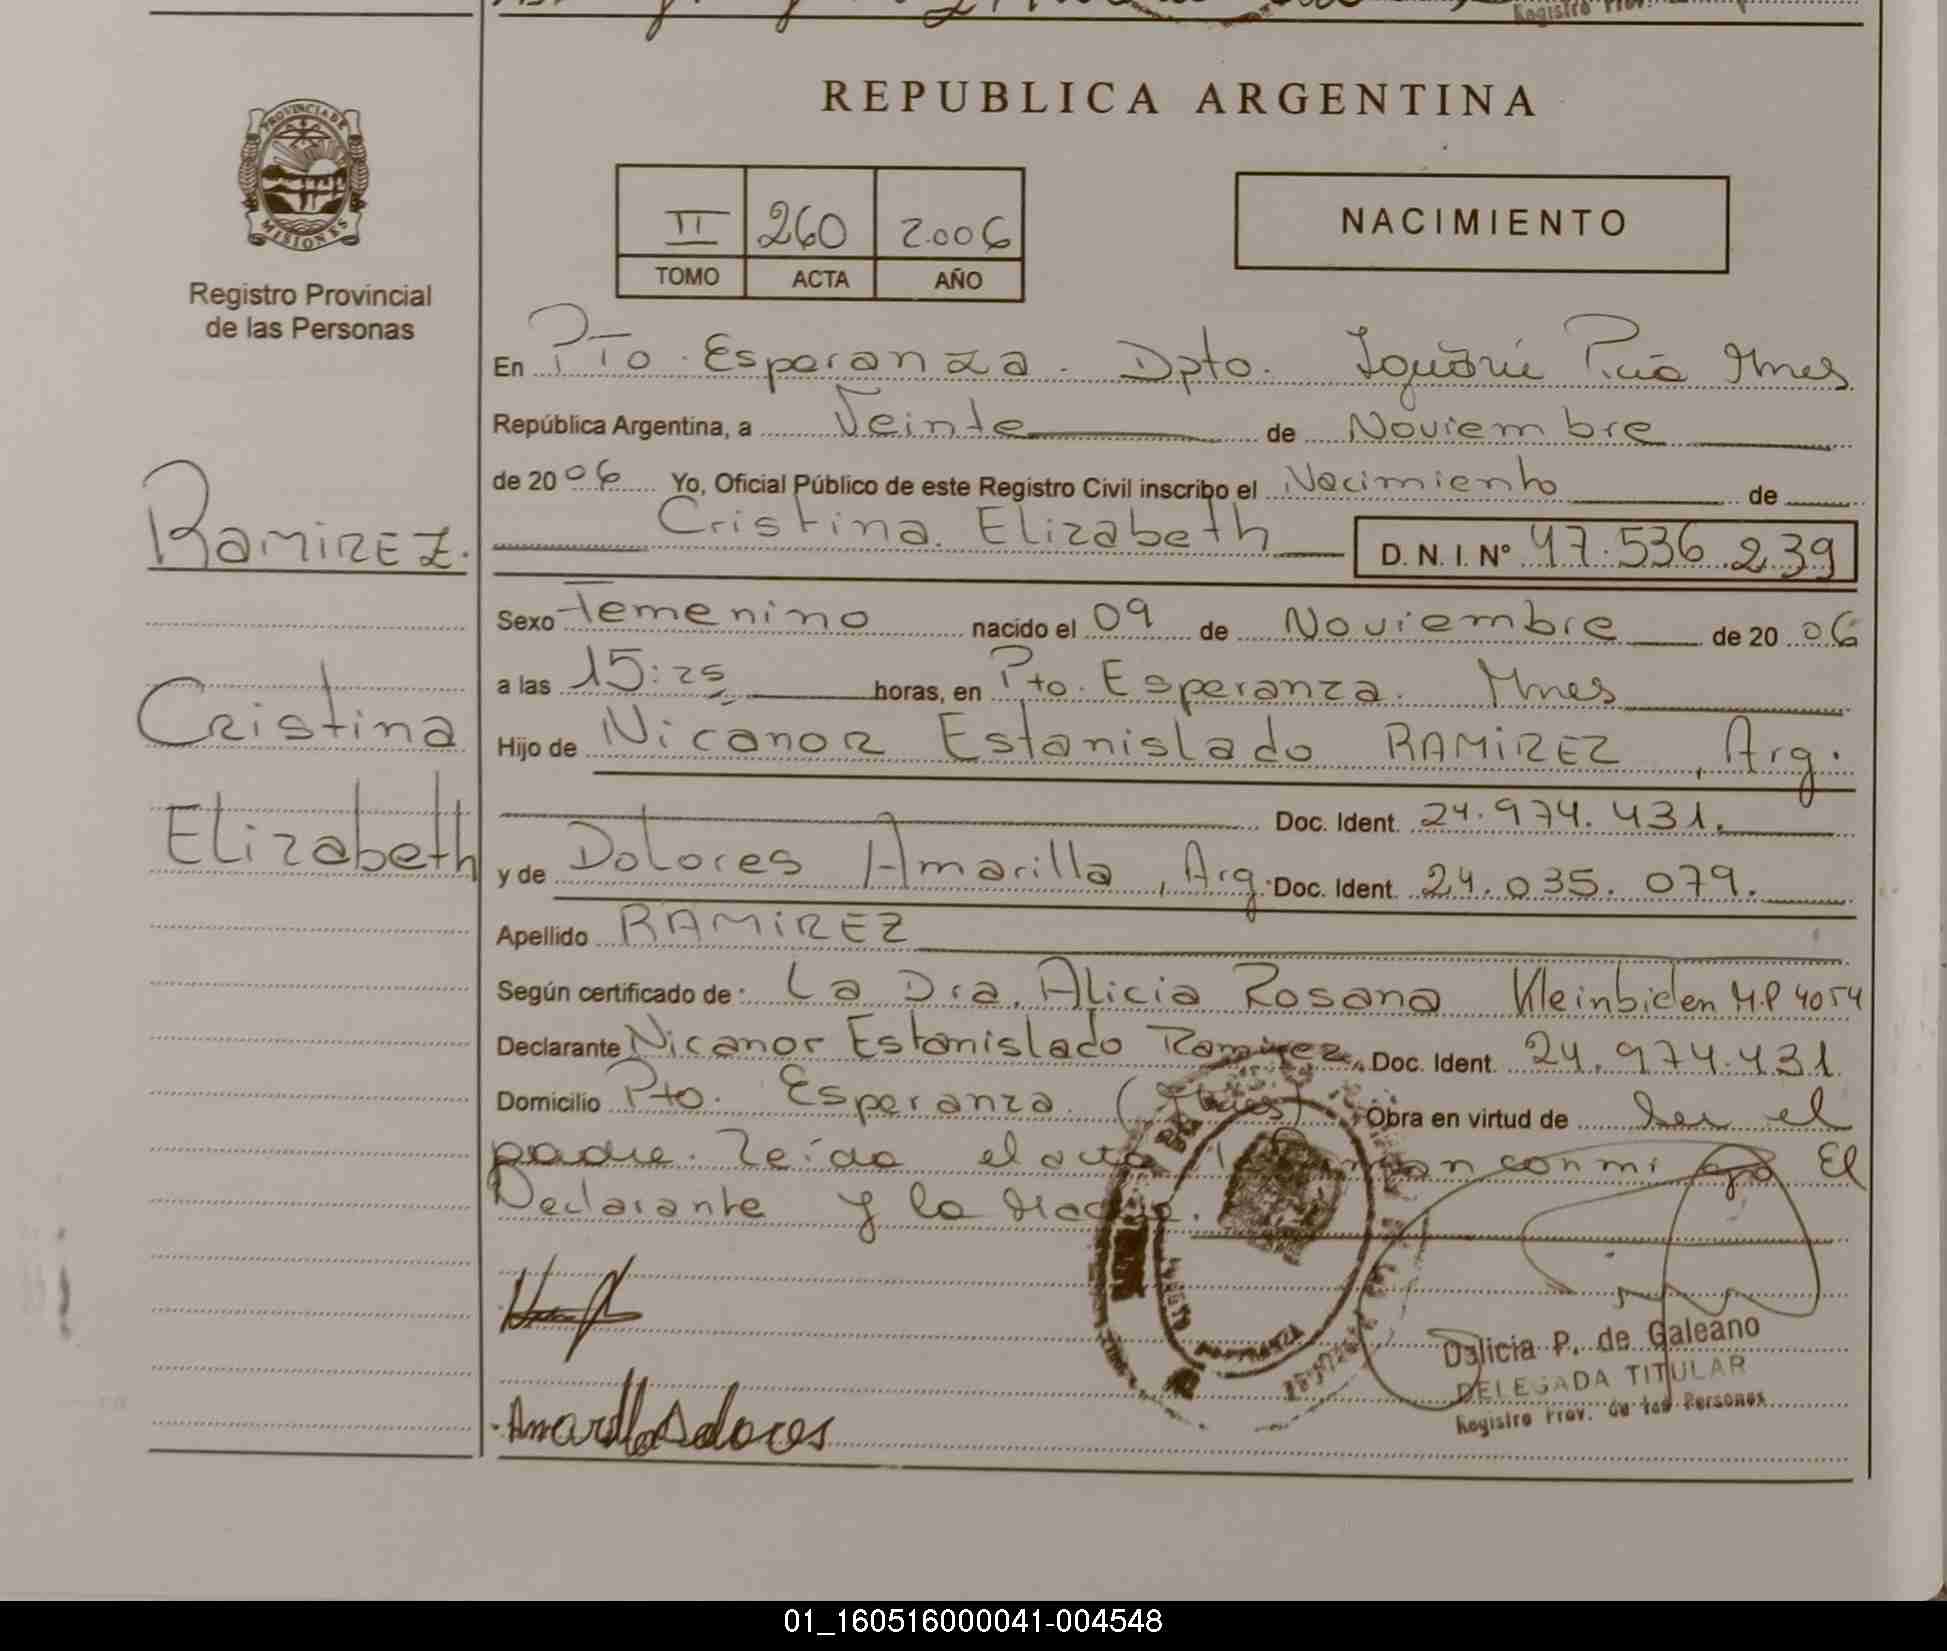 REPUBLICA ARGENTINA
PROVINCIA DE
MISIONES
Registro Provincial
de las Personas
II 260 2.006
TOMO ACTA AÑO
NACIMIENTO
RAMIREZ.
Cristina
Elizabeth
En Pto. Esperanza. Dpto. Iguazú Pcia Mnes
República Argentina, a Veinte de Noviembre
de 2006 Yo, Oficial Público de este Registro Civil inscribo el Nacimiento de
Cristina Elizabeth D. N. I. Nº 47.536.239
Sexo Femenino nacido el 09 de Noviembre de 2006
a las 15:25 horas, en Pto. Esperanza. Mnes
Hijo de Nicanor Estanislado RAMIREZ, Arg.
Doc. Ident. 24.974.431.
y de Dolores Amarilla, Arg. Doc. Ident. 24.035.079.
Apellido RAMIREZ
Según certificado de: La Dra. Alicia Rosana Kleinbielen M.P 4054
Declarante Nicanor Estanislado Ramirez, Doc. Ident. 24.974.431.
Domicilio Pto. Esperanza. (Mnes) Obra en virtud de ser el
padre. Leída el acta firman conmigo El
Declarante y la Madre.
Amarilla Dolores
Dalicia P. de Galeano
DELEGADA TITULAR
Registro Prov. de las Personas
01_160516000041-004548